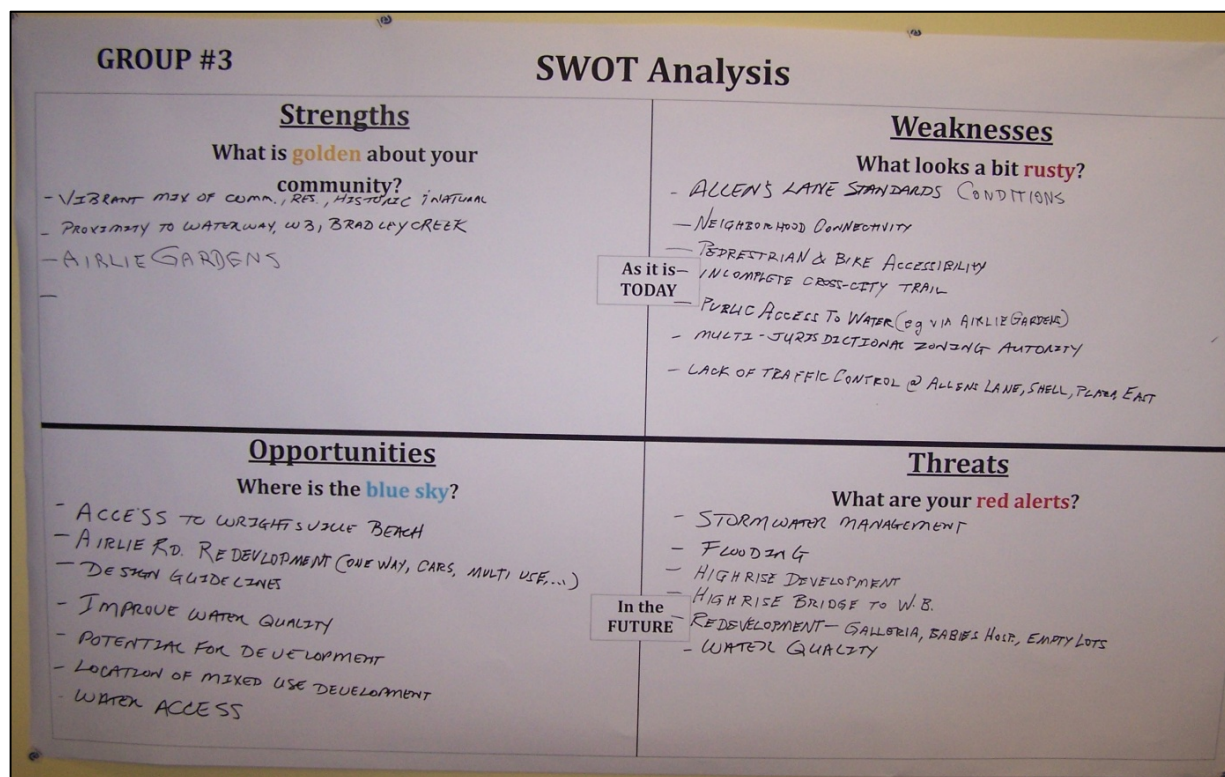 GROUP #3
SWOT Analysis
Strengths
What is golden about your
community?
- VIBRANT MIX OF COMM., RES., HISTORIC & NATURAL
- PROXIMITY TO WATERWAY, WB, BRADLEY CREEK
- AIRLIE GARDENS
-
Weaknesses
What looks a bit rusty?
- ALLEN'S LANE STANDARDS CONDITIONS
- NEIGHBORHOOD CONNECTIVITY
- PEDRESTRIAN & BIKE ACCESSIBILITY
- INCOMPLETE CROSS-CITY TRAIL
- PUBLIC ACCESS TO WATER (eg VIA AIRLIE GARDENS)
- MULTI-JURISDICTIONAL ZONING AUTORITY
- LACK OF TRAFFIC CONTROL @ ALLENS LANE, SHELL, PLAZA EAST
As it is
TODAY
Opportunities
Where is the blue sky?
- ACCESS TO WRIGHTSVILLE BEACH
- AIRLIE RD. REDEVLOPMENT (ONE WAY, CARS, MULTI USE,...)
- DESIGN GUIDELINES
- IMPROVE WATER QUALITY
- POTENTIAL FOR DEVELOPMENT
- LOCATION OF MIXED USE DEVELOPMENT
- WATER ACCESS
Threats
What are your red alerts?
- STORMWATER MANAGEMENT
- FLOODING
- HIGHRISE DEVELOPMENT
- HIGHRISE BRIDGE TO W.B.
- REDEVELOPMENT - GALLERIA, BABIES HOSP., EMPTY LOTS
- WATER QUALITY
In the
FUTURE